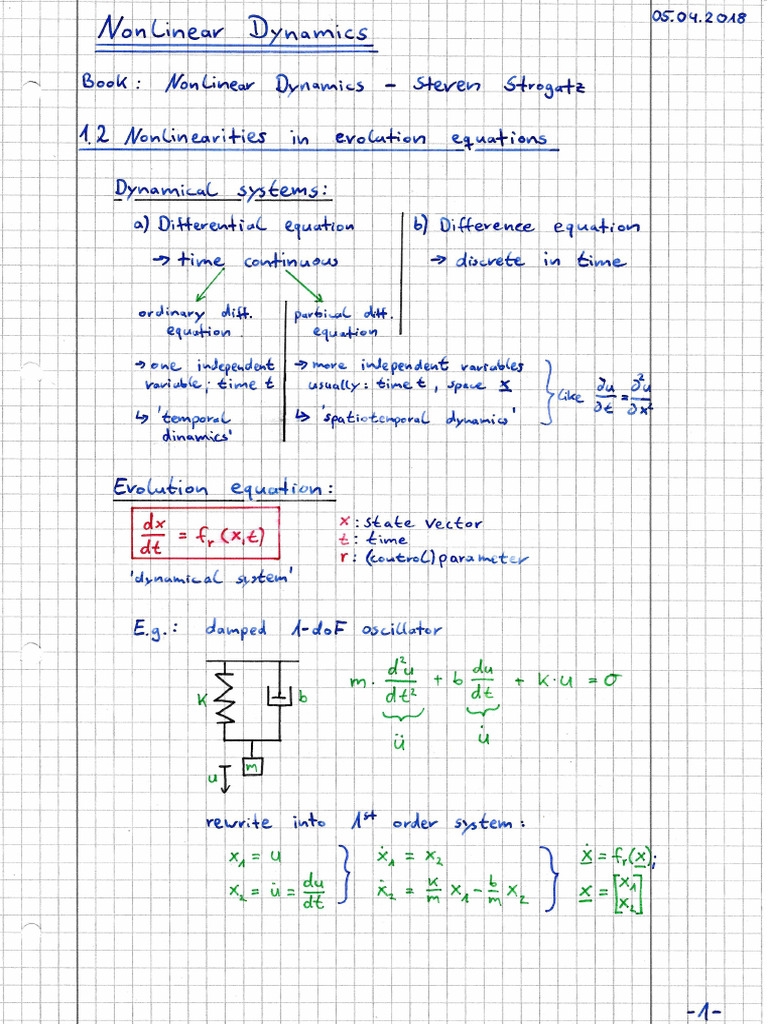 05.04.2018
Nonlinear Dynamics
Book: Nonlinear Dynamics - Steven Strogatz
1.2 Nonlinearities in evolution equations
Dynamical systems:
a) Differential equation
→ time continuous
b) Difference equation
→ discrete in time
ordinary diff.
equation
→ one independent
variable; time t
↳ 'temporal
dinamics'
partical diff.
equation
→ more independent variables
usually: time t, space x
↳ 'spatiotemporal dynamics'
like ∂u/∂t = ∂²u/∂x²
Evolution equation:
dx/dt = fᵣ(x,t)
'dynamical system'
x: state vector
t: time
r: (control) parameter
E.g.: damped 1-doF oscillator
k b
m
u
m · d²u/dt² + b du/dt + k·u = 0
ü u̇
rewrite into 1st order system:
x₁ = u
x₂ = u̇ = du/dt
ẋ₁ = x₂
ẋ₂ = k/m x₁ - b/m x₂
ẋ = fᵣ(x);
x = [x₁ x₂]
-1-